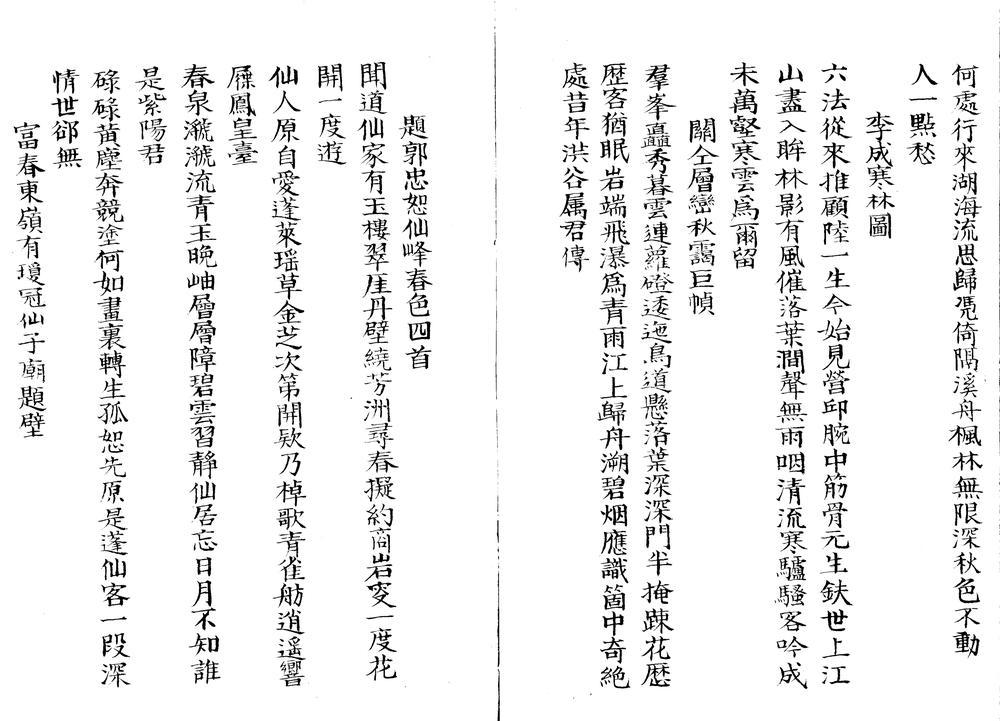 何處行來湖海流思歸凴倚隔溪舟楓林無限深秋色不動
人一點愁
李成寒林圖
六法從來推顧陸一生今始見營邱腕中筋骨元生鈇世上江
山盡入眸林影有風催落葉澗聲無雨咽清流寒驢騷客吟成
未萬壑寒雲爲爾留
關仝層巒秋靄巨幀
羣峯矗秀暮雲連蘿磴逶迤鳥道懸落葉深深門半掩踈花歴
歴客猶眠岩端飛瀑爲青雨江上歸舟溯碧烟應識箇中奇絶
處昔年洪谷属君傳
題郭忠恕仙峰春色四首
聞道仙家有玉樓翠厓丹壁繞芳洲尋春擬約商岩叟一度花
開一度遊
仙人原自愛蓬萊瑶草金芝次第開欵乃棹歌青雀舫逍遥響
屧鳳皇臺
春泉㶁㶁流青玉晚岫層層障碧雲習靜仙居忘日月不知誰
是紫陽君
碌碌黄塵奔競塗何如畫裏轉生孤恕先原是蓬仙客一段深
情世郤無
富春東嶺有瓊冠仙子廟題壁